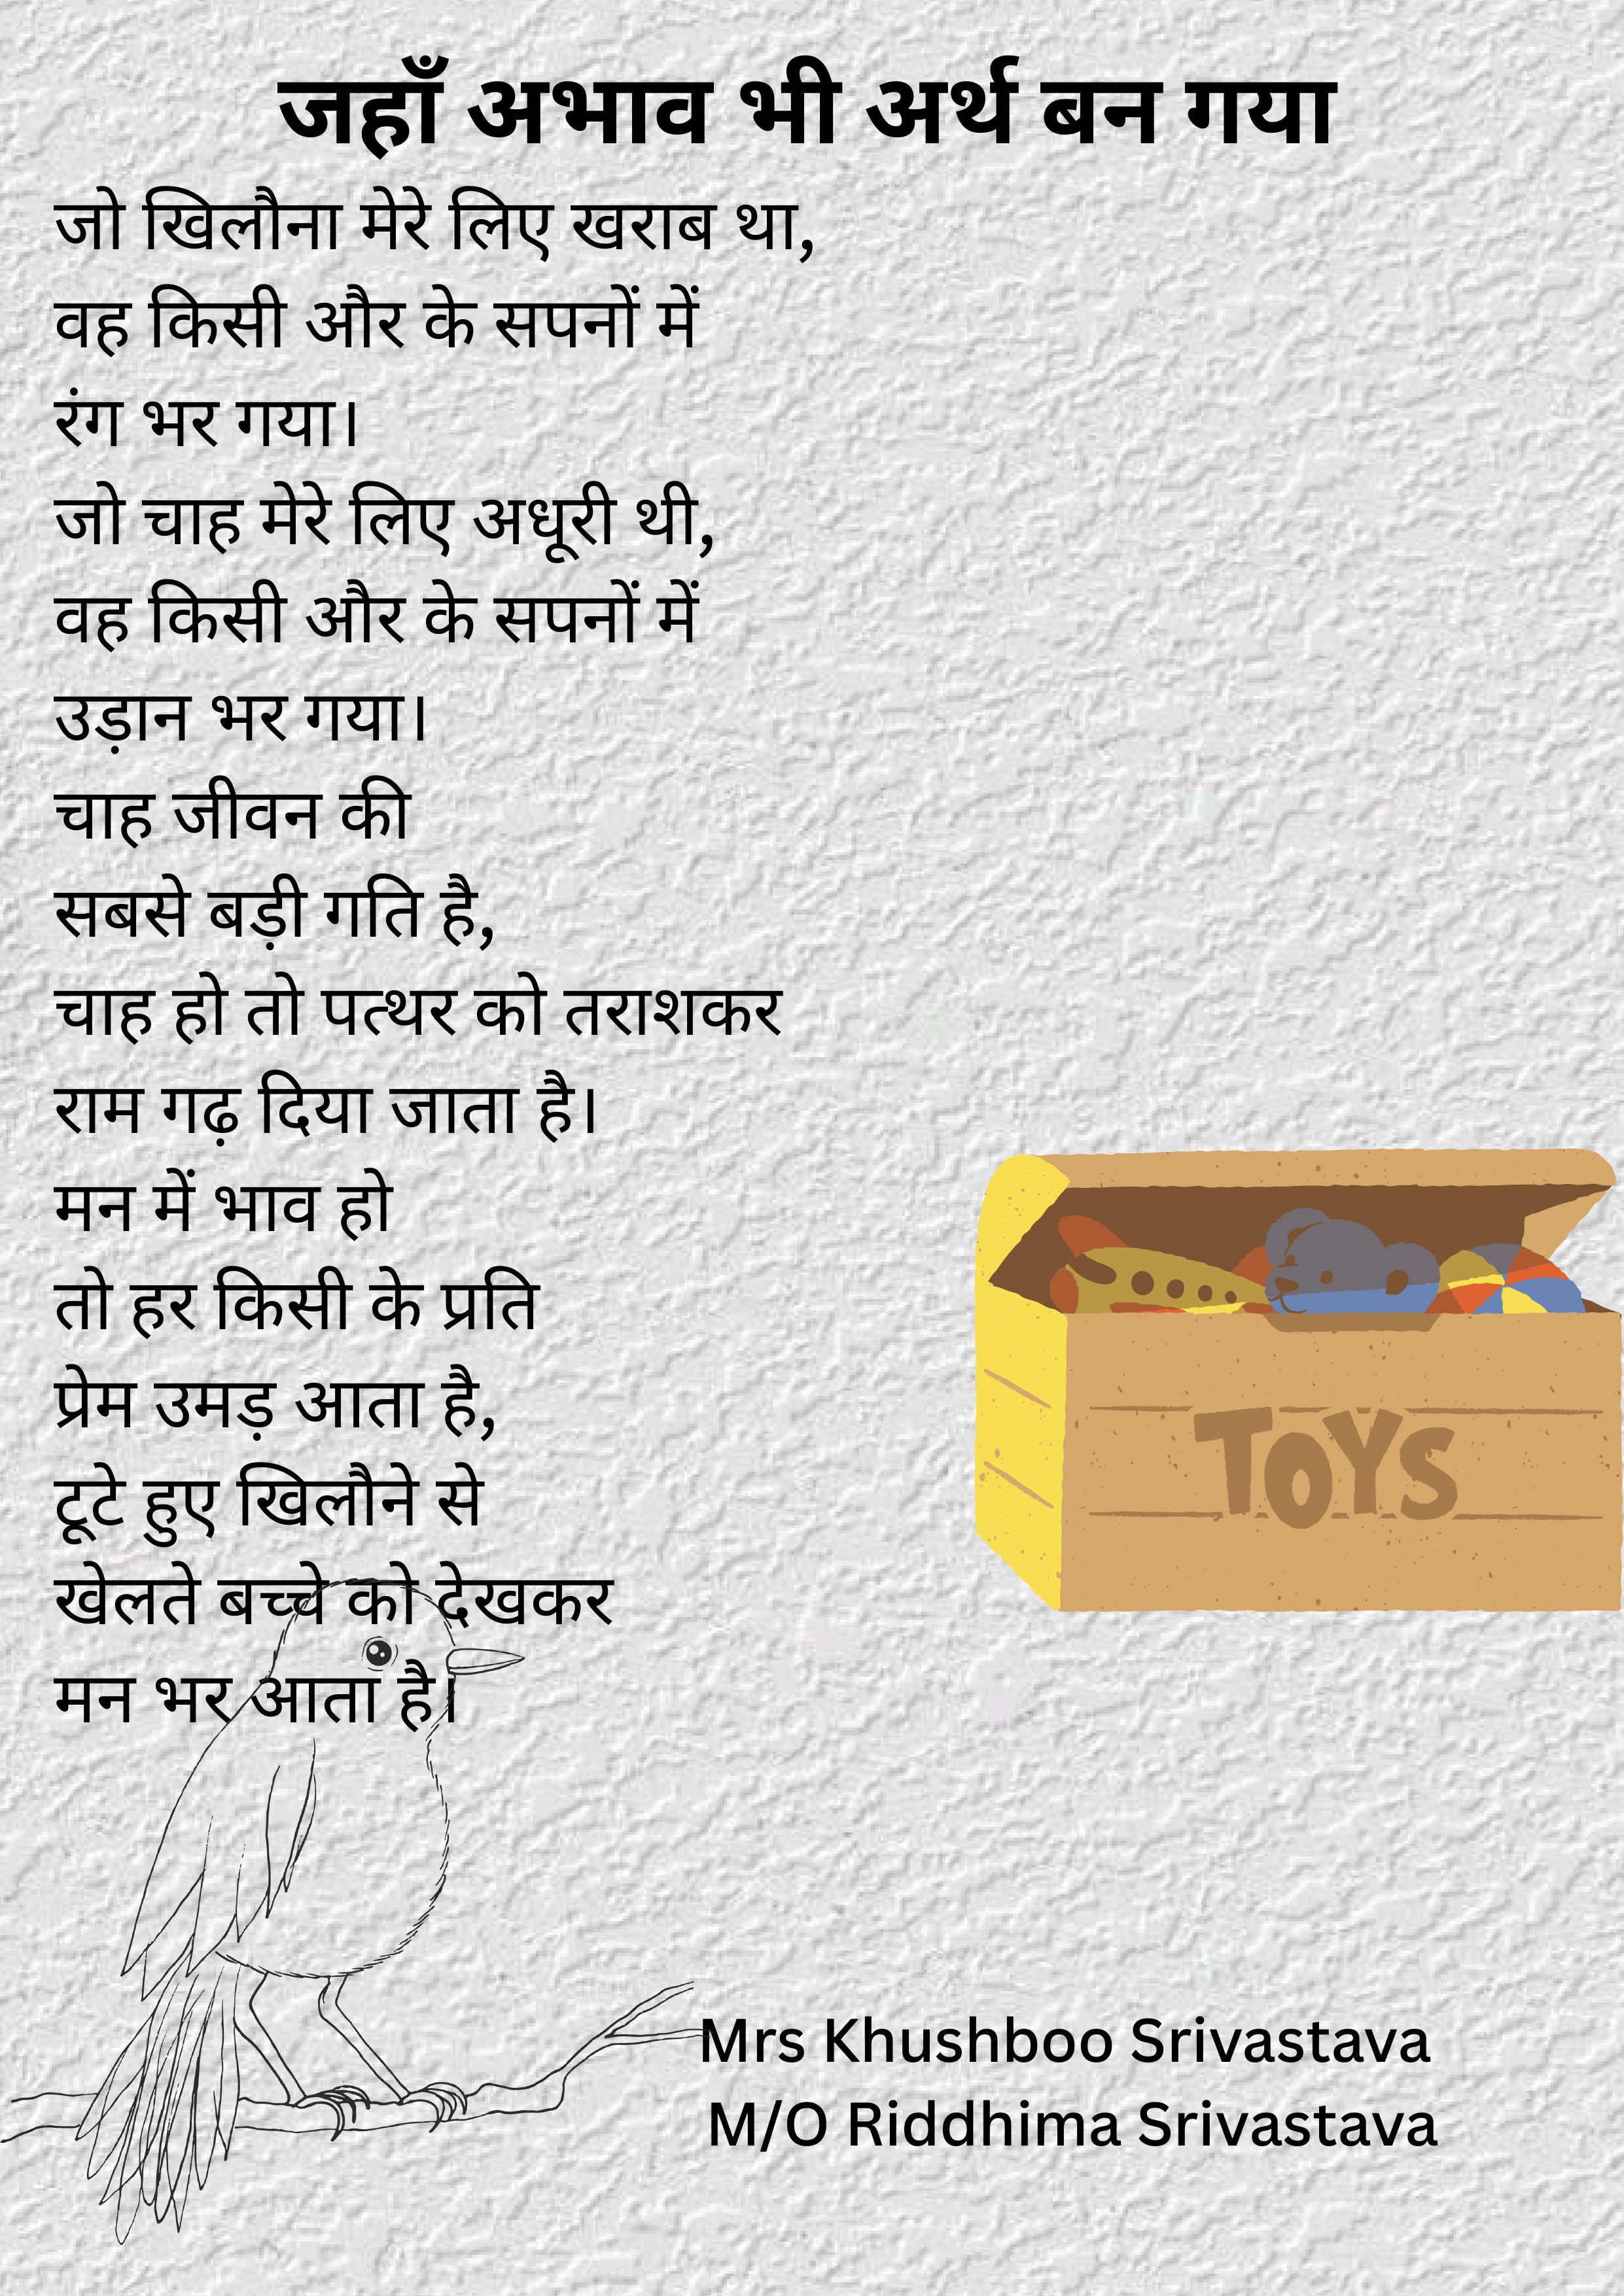 जहाँ अभाव भी अर्थ बन गया
जो खिलौना मेरे लिए खराब था,
वह किसी और के सपनों में
रंग भर गया।
जो चाह मेरे लिए अधूरी थी,
वह किसी और के सपनों में
उड़ान भर गया।
चाह जीवन की
सबसे बड़ी गति है,
चाह हो तो पत्थर को तराशकर
राम गढ़ दिया जाता है।
मन में भाव हो
तो हर किसी के प्रति
प्रेम उमड़ आता है,
टूटे हुए खिलौने से
खेलते बच्चे को देखकर
मन भर आता है।
TOYS
Mrs Khushboo Srivastava
M/O Riddhima Srivastava